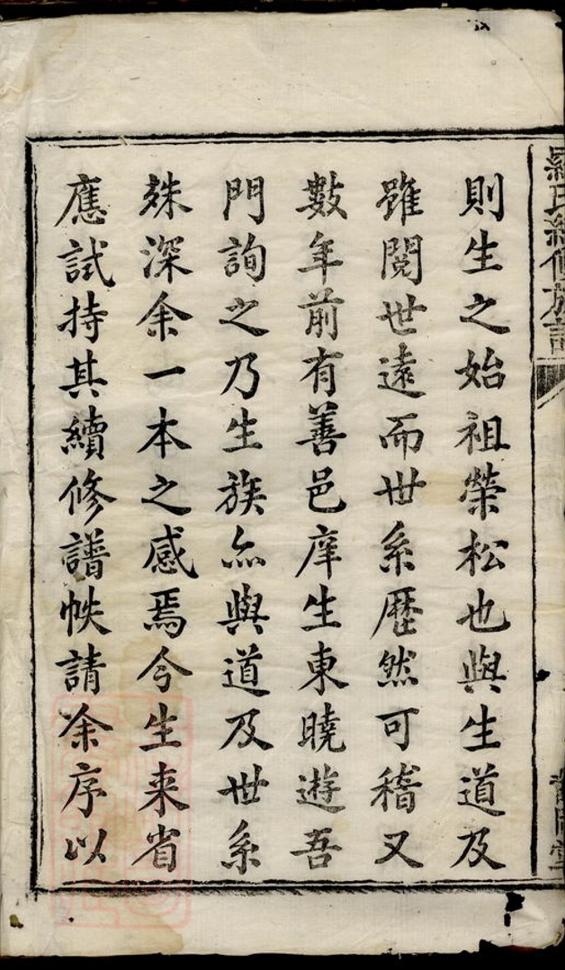 羅氏續修族譜
則生之始祖榮松也與生道及
雖閱世遠而世系歷然可稽又
數年前有善邑庠生東曉遊吾
門詢之乃生族亦與道及世系
殊深余一本之感焉今生来省
應試持其續修譜帙請余序以